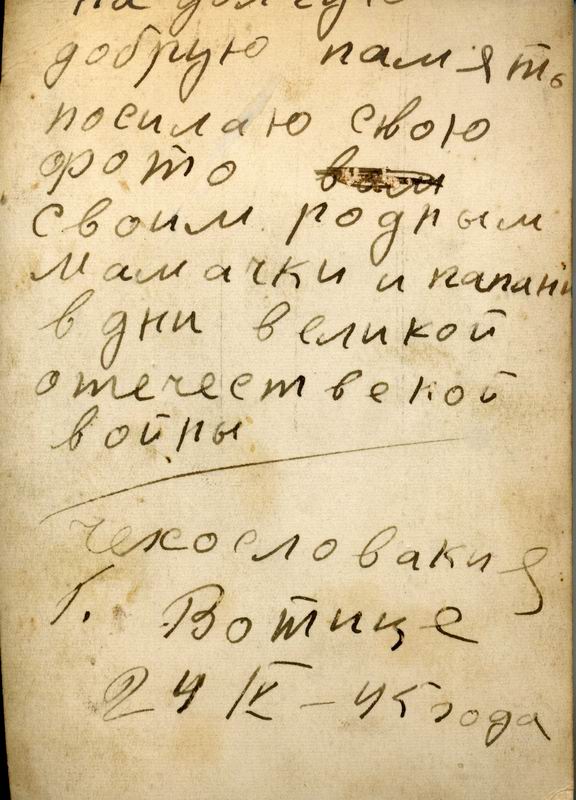 на долгую
добрую память
посилаю свою
фото вам
своим родным
мамачки и папани
в дни великой
отечественой
войны
Чехословакия
г. Вотице
24 IV - 45 года